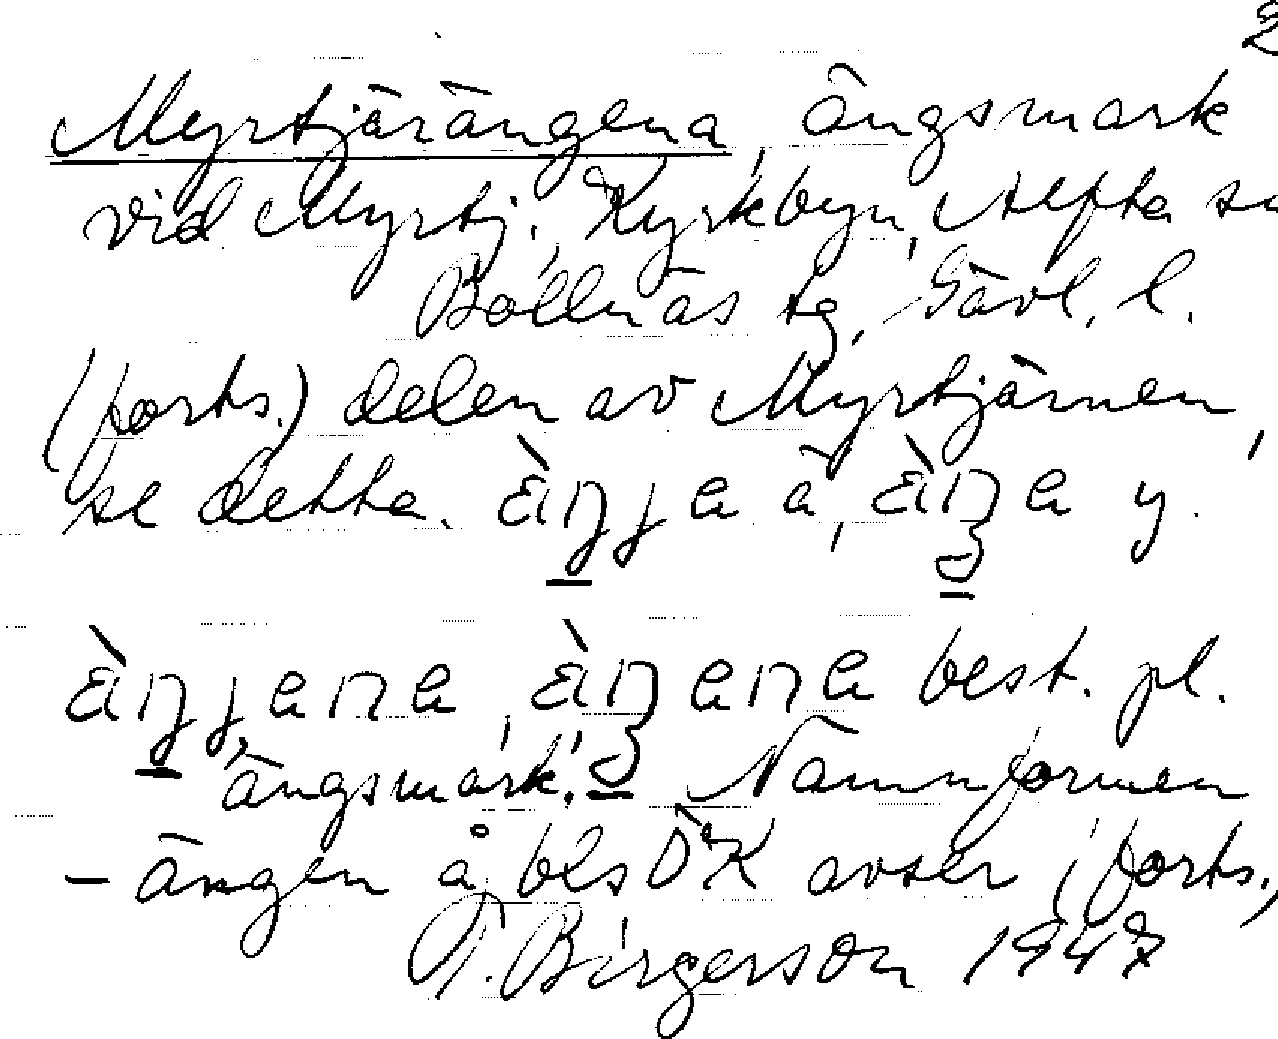 2
Myrtjärängena, ängsmark
vid Myrtj., Kyrkbyn, Alfta sn
Bollnäs tg, Gävl. l.
(forts.) delen av Myrtjärnen,
se detta. àŋja ä, àŋa y.
àŋjana, àŋana best. pl.
ängsmark. Namnformen
- ängen å bl s ÖK avser (forts.)
T. Birgerson 1947